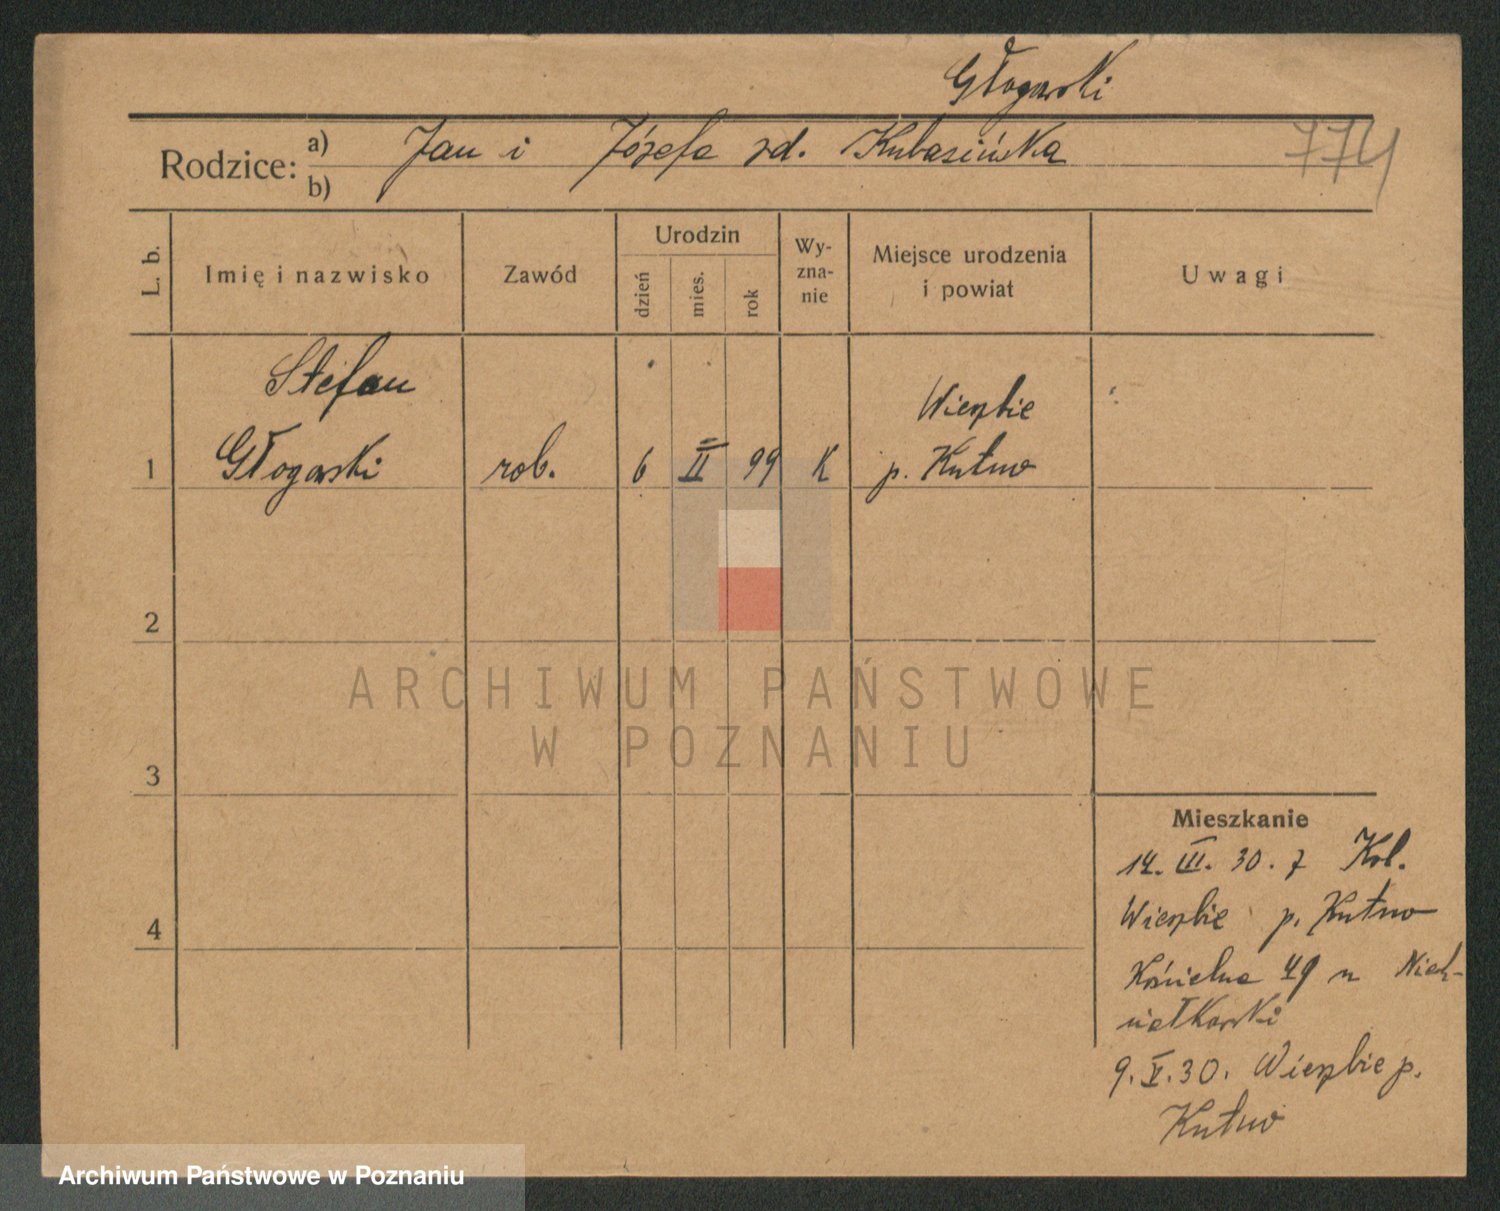 Głogowski
Rodzice: a) Jan i Józefa zd. Kubasińska 774
b)
L. b. Imię i nazwisko Zawód Urodzin dzień mies. rok Wy-zna-nie Miejsce urodzenia i powiat Uwagi
Stefan Wierzbie
1 Głogowski rob. 6 II 99 K p. Kutno
2
ARCHIWUM PAŃSTWOWE
W POZNANIU
3
Mieszkanie
14. III. 30. z Kol.
4 Wierzbie p. Kutno
Kościelna 49
9. V. 30. Wierzbie p.
Kutno
Archiwum Państwowe w Poznaniu